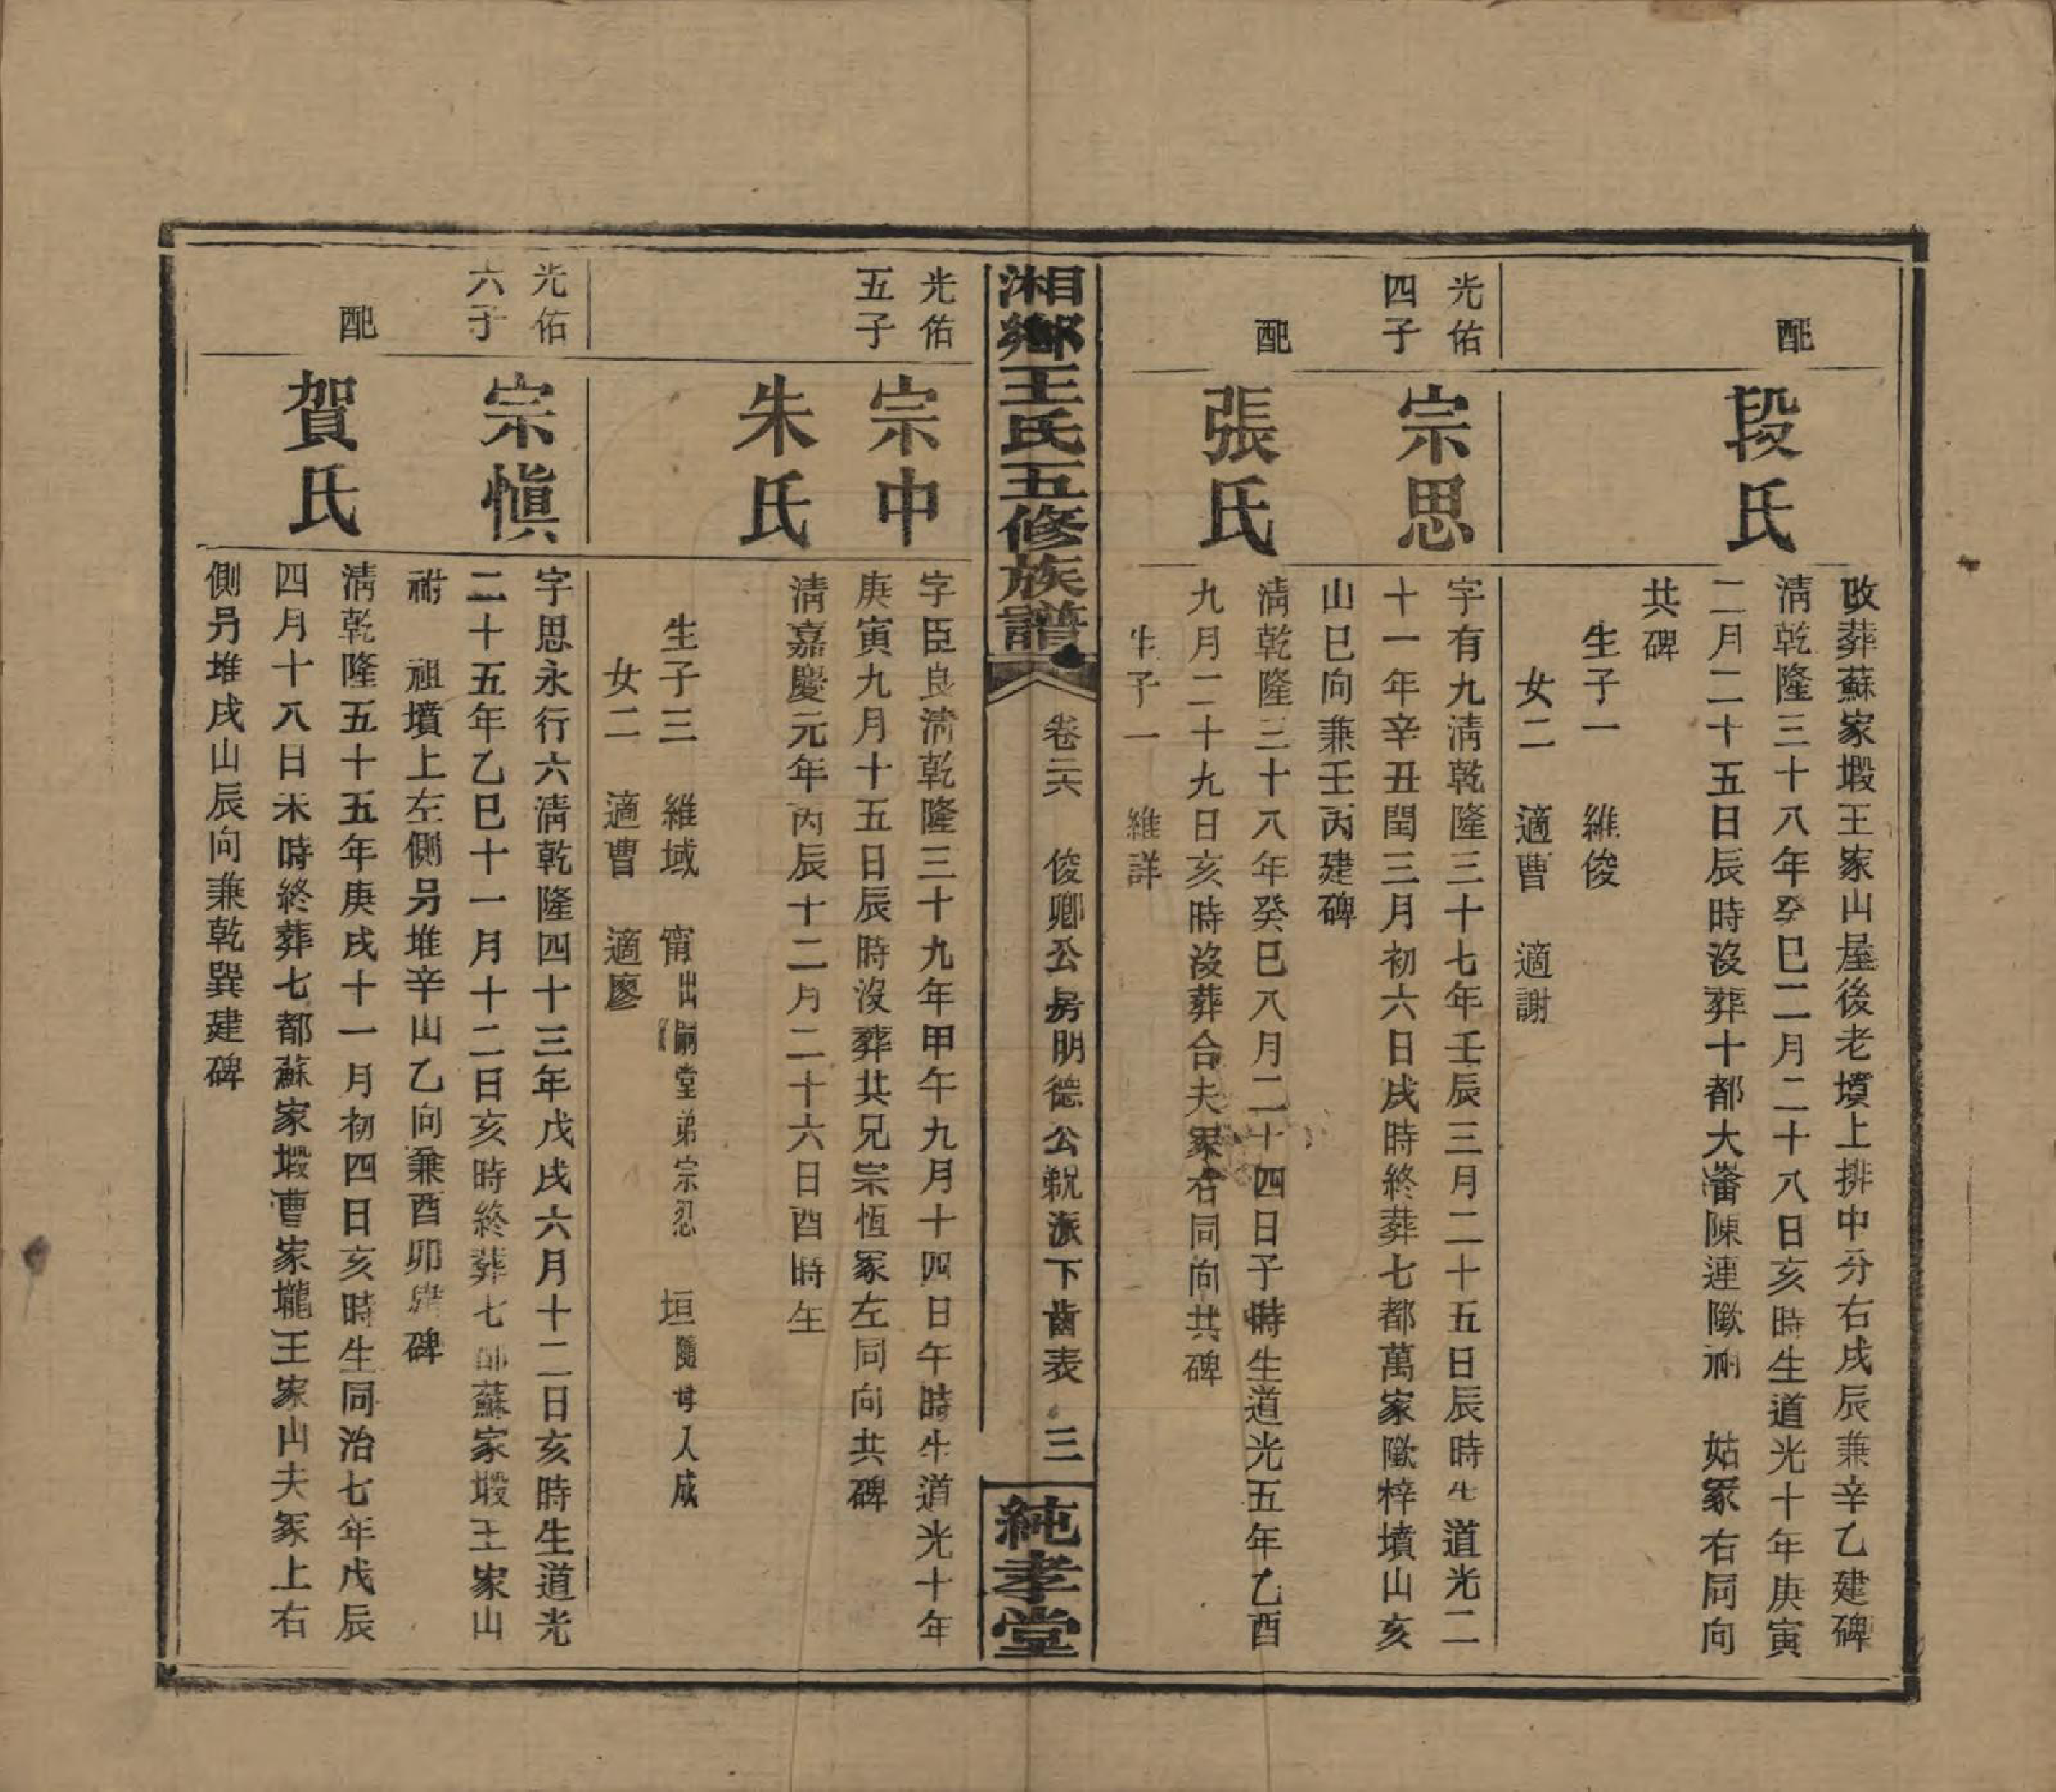 改葬蘇家塅王家山屋後老墳上排中分右戌辰兼辛乙建碑
配
段氏
清乾隆三十八年癸巳二月二十八日亥時生道光十年庚寅
二月二十五日辰時沒葬十都大 陳連 祔 姑冢右同向
共碑
生子一 維俊
女二 適曹 適謝
光佑
四子
宗思
字有九清乾隆三十七年壬辰三月二十五日辰時生道光二
十一年辛丑閏三月初六日戌時終葬七都萬家 梓墳山亥
山巳向兼壬丙建碑
配
張氏
清乾隆三十八年癸巳八月二十四日子時生道光五年乙酉
九月二十九日亥時沒葬合夫冢右同向共碑
生子一 維詳
湘鄉王氏五修族譜 卷二六 俊卿公房明德公 派下齒表 三 純孝堂
光佑
五子
宗中
字臣良清乾隆三十九年甲午九月十四日午時生道光十年
庚寅九月十五日辰時沒葬共兄宗恆冢左同向共碑
朱氏
清嘉慶元年丙辰十二月二十六日酉時生
生子三 維域 甯出嗣堂弟宗忍 垣隨母人成
女二 適曹 適廖
光佑
六子
宗愼
字思永行六清乾隆四十三年戊戌六月十二日亥時生道光
二十五年乙巳十一月十二日亥時終葬七都蘇家塅王家山
祔 祖墳上左側另堆辛山乙向兼酉卯建碑
配
賀氏
清乾隆五十五年庚戌十一月初四日亥時生同治七年戊辰
四月十八日未時終葬七都蘇家塅曹家壠王家山夫冢上右
側另堆戌山辰向兼乾巽建碑